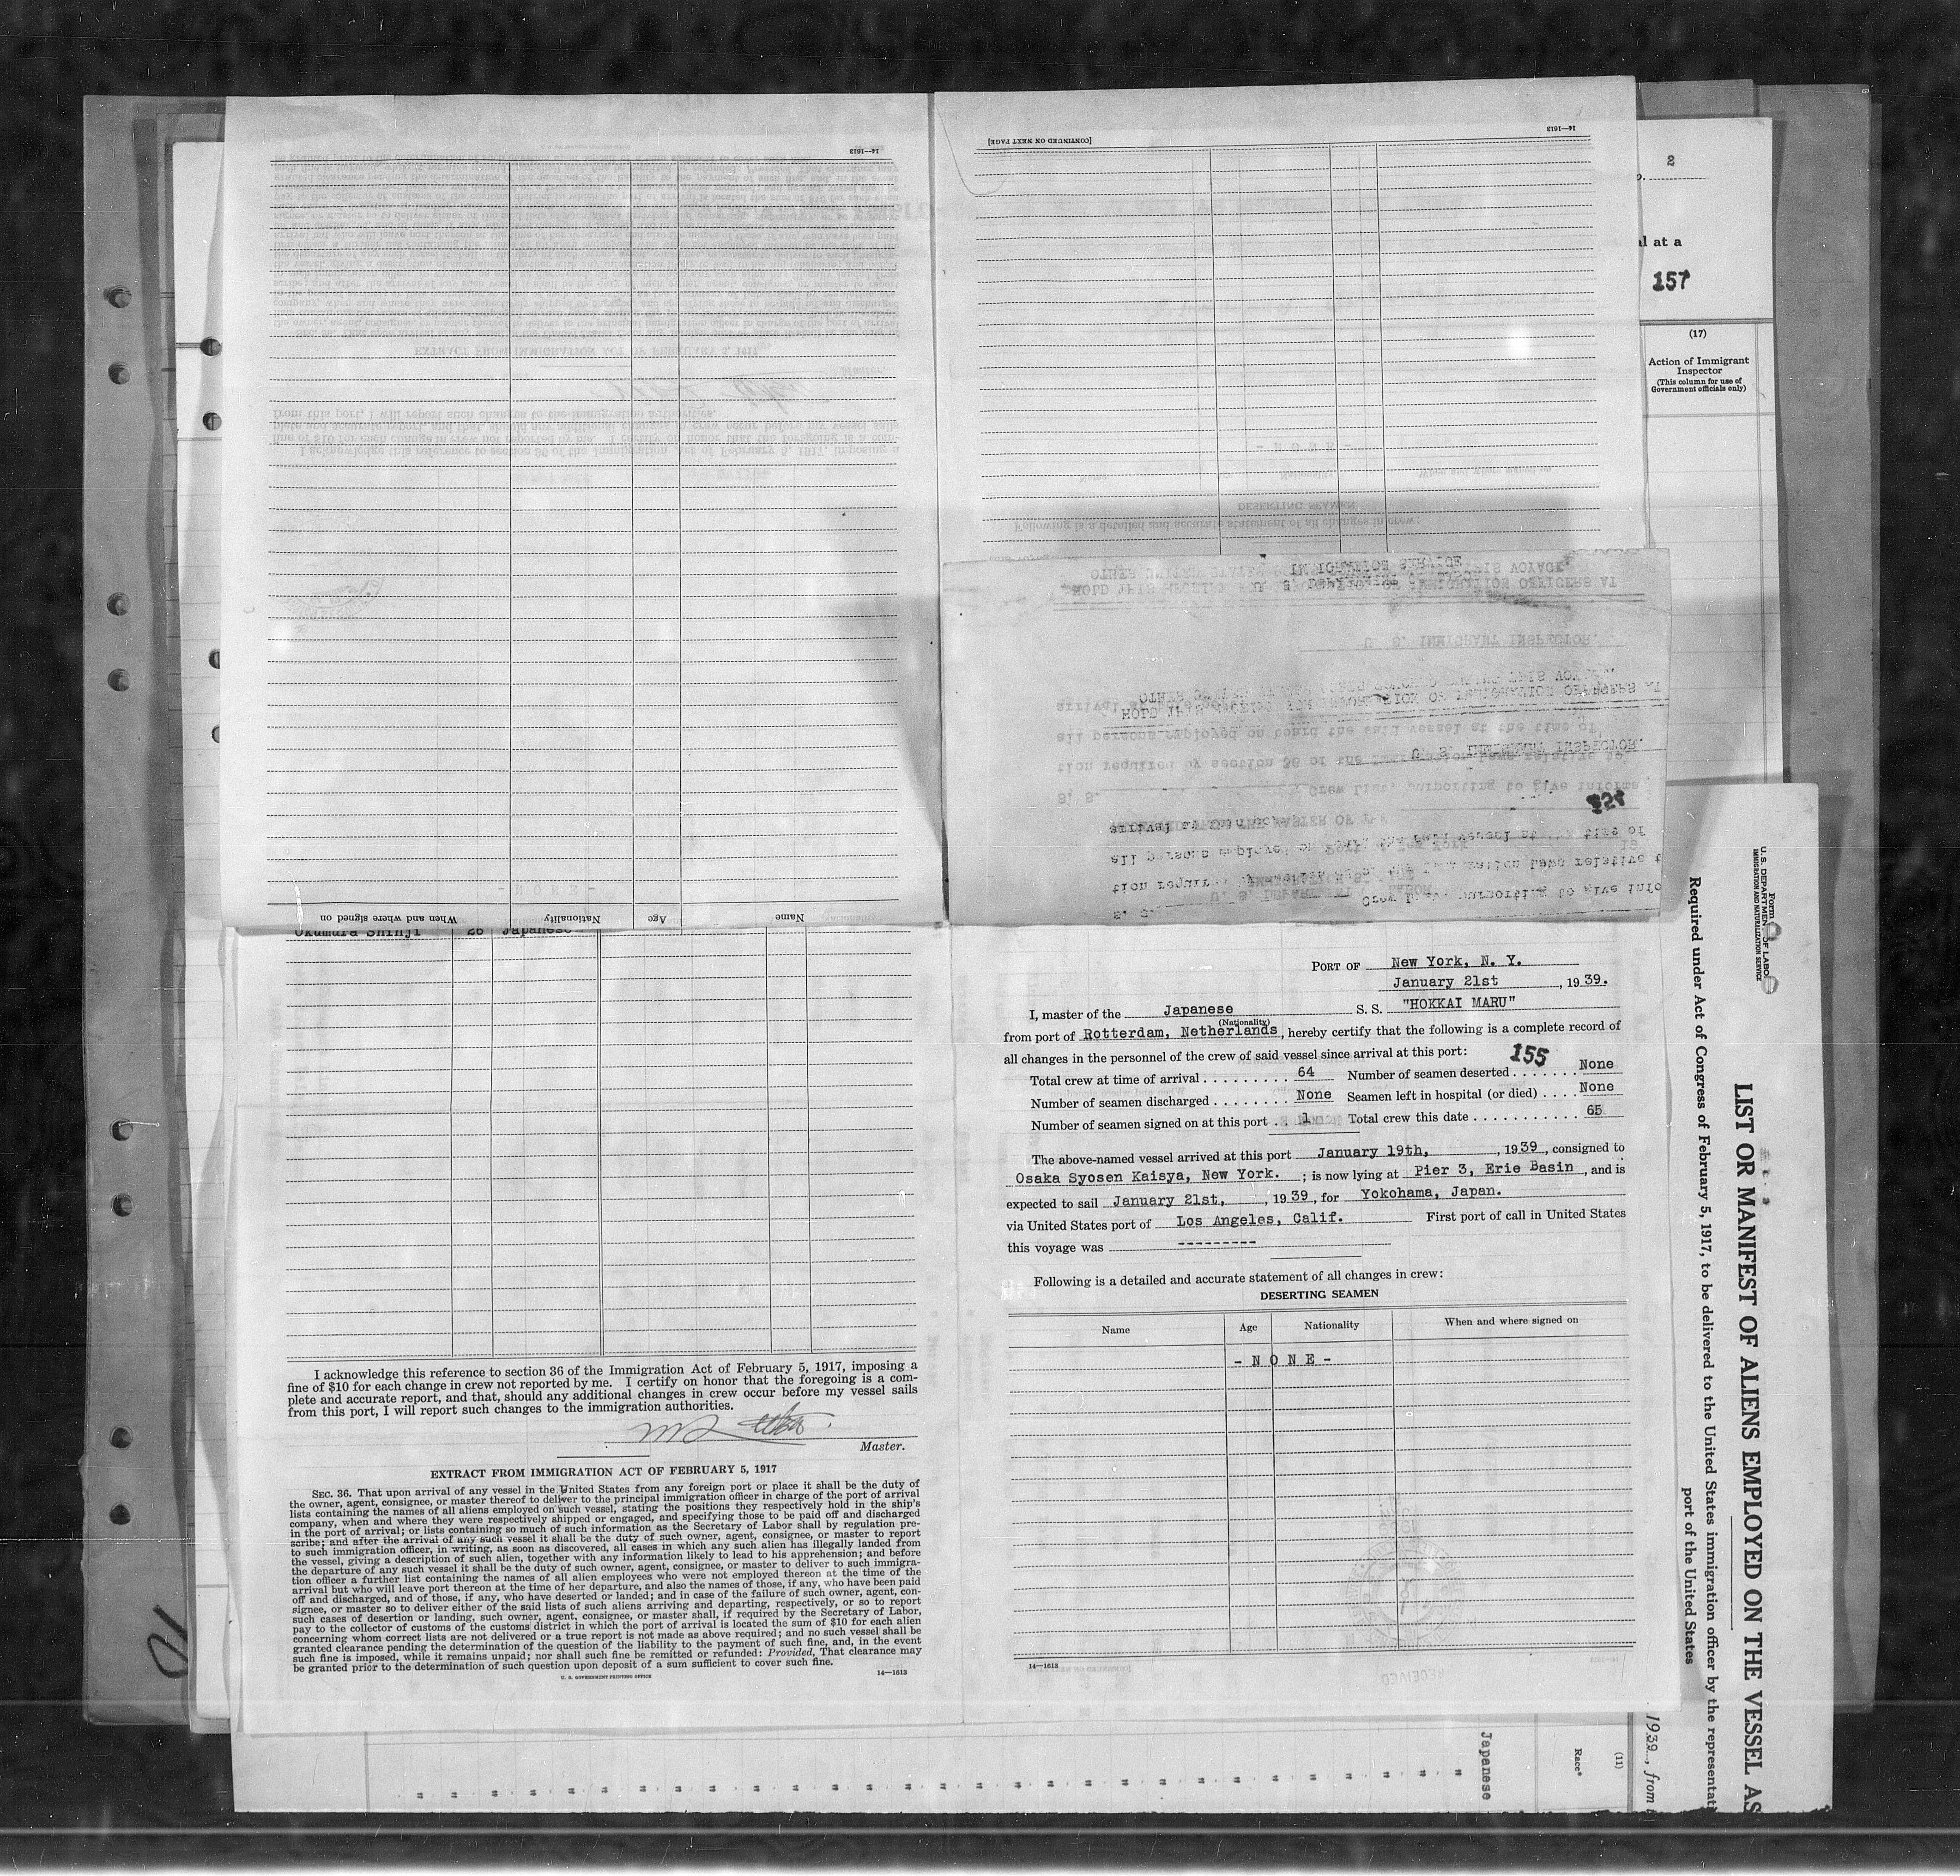 2
al at a
157
(17)
Action of Immigrant
Inspector
(This column for use of
Government officials only)
14—1613
When and where signed on
Nationality
Age
Name
[CONTINUED ON NEXT PAGE]
14—1613
Okumura Shinji 26 Japanese
I acknowledge this reference to section 36 of the Immigration Act of February 5, 1917, imposing a
fine of $10 for each change in crew not reported by me. I certify on honor that the foregoing is a com-
plete and accurate report, and that, should any additional changes in crew occur before my vessel sails
from this port, I will report such changes to the immigration authorities.
Master.
EXTRACT FROM IMMIGRATION ACT OF FEBRUARY 5, 1917
SEC. 36. That upon arrival of any vessel in the United States from any foreign port or place it shall be the duty of
the owner, agent, consignee, or master thereof to deliver to the principal immigration officer in charge of the port of arrival
lists containing the names of all aliens employed on such vessel, stating the positions they respectively hold in the ship's
company, when and where they were respectively shipped or engaged, and specifying those to be paid off and discharged
in the port of arrival; or lists containing so much of such information as the Secretary of Labor shall by regulation pre-
scribe; and after the arrival of any such vessel it shall be the duty of such owner, agent, consignee, or master to report
to such immigration officer, in writing, as soon as discovered, all cases in which any such alien has illegally landed from
the vessel, giving a description of such alien, together with any information likely to lead to his apprehension; and before
the departure of any such vessel it shall be the duty of such owner, agent, consignee, or master to deliver to such immigra-
tion officer a further list containing the names of all alien employees who were not employed thereon at the time of the
arrival but who will leave port thereon at the time of her departure, and also the names of those, if any, who have been paid
off and discharged, and of those, if any, who have deserted or landed; and in case of the failure of such owner, agent, con-
signee, or master so to deliver either of the said lists of such aliens arriving and departing, respectively, or so to report
such cases of desertion or landing, such owner, agent, consignee, or master shall, if required by the Secretary of Labor,
pay to the collector of customs of the customs district in which the port of arrival is located the sum of $10 for each alien
concerning whom correct lists are not delivered or a true report is not made as above required; and no such vessel shall be
granted clearance pending the determination of the question of the liability to the payment of such fine, and, in the event
such fine is imposed, while it remains unpaid; nor shall such fine be remitted or refunded: Provided, That clearance may
be granted prior to the determination of such question upon deposit of a sum sufficient to cover such fine.
U. S. GOVERNMENT PRINTING OFFICE
14—1613
PORT OF New York, N. Y.
January 21st, 1939.
I, master of the Japanese S. S. "HOKKAI MARU"
(Nationality)
from port of Rotterdam, Netherlands, hereby certify that the following is a complete record of
all changes in the personnel of the crew of said vessel since arrival at this port:
155
Total crew at time of arrival . . . . . . . . . 64 Number of seamen deserted . . . . . . . None
Number of seamen discharged . . . . . . . . None Seamen left in hospital (or died) . . . . None
Number of seamen signed on at this port . . 1 Total crew this date . . . . . . . . . . . 65
The above-named vessel arrived at this port January 19th, , 1939, consigned to
Osaka Syosen Kaisya, New York. ; is now lying at Pier 3, Erie Basin, and is
expected to sail January 21st, , 1939, for Yokohama, Japan.
via United States port of Los Angeles, Calif. First port of call in United States
this voyage was ---------
Following is a detailed and accurate statement of all changes in crew:
DESERTING SEAMEN
Name Age Nationality When and where signed on
- N O N E -
14—1613
Form
U. S. DEPARTMENT OF LABOR
IMMIGRATION AND NATURALIZATION SERVICE
LIST OR MANIFEST OF ALIENS EMPLOYED ON THE VESSEL AS
Required under Act of Congress of February 5, 1917, to be delivered to the United States immigration officer by the representati
port of the United States
1939, from
(11)
Race*
Japanese
" " " " " " " " " " " " " " " " " " " " " " " " " " " "